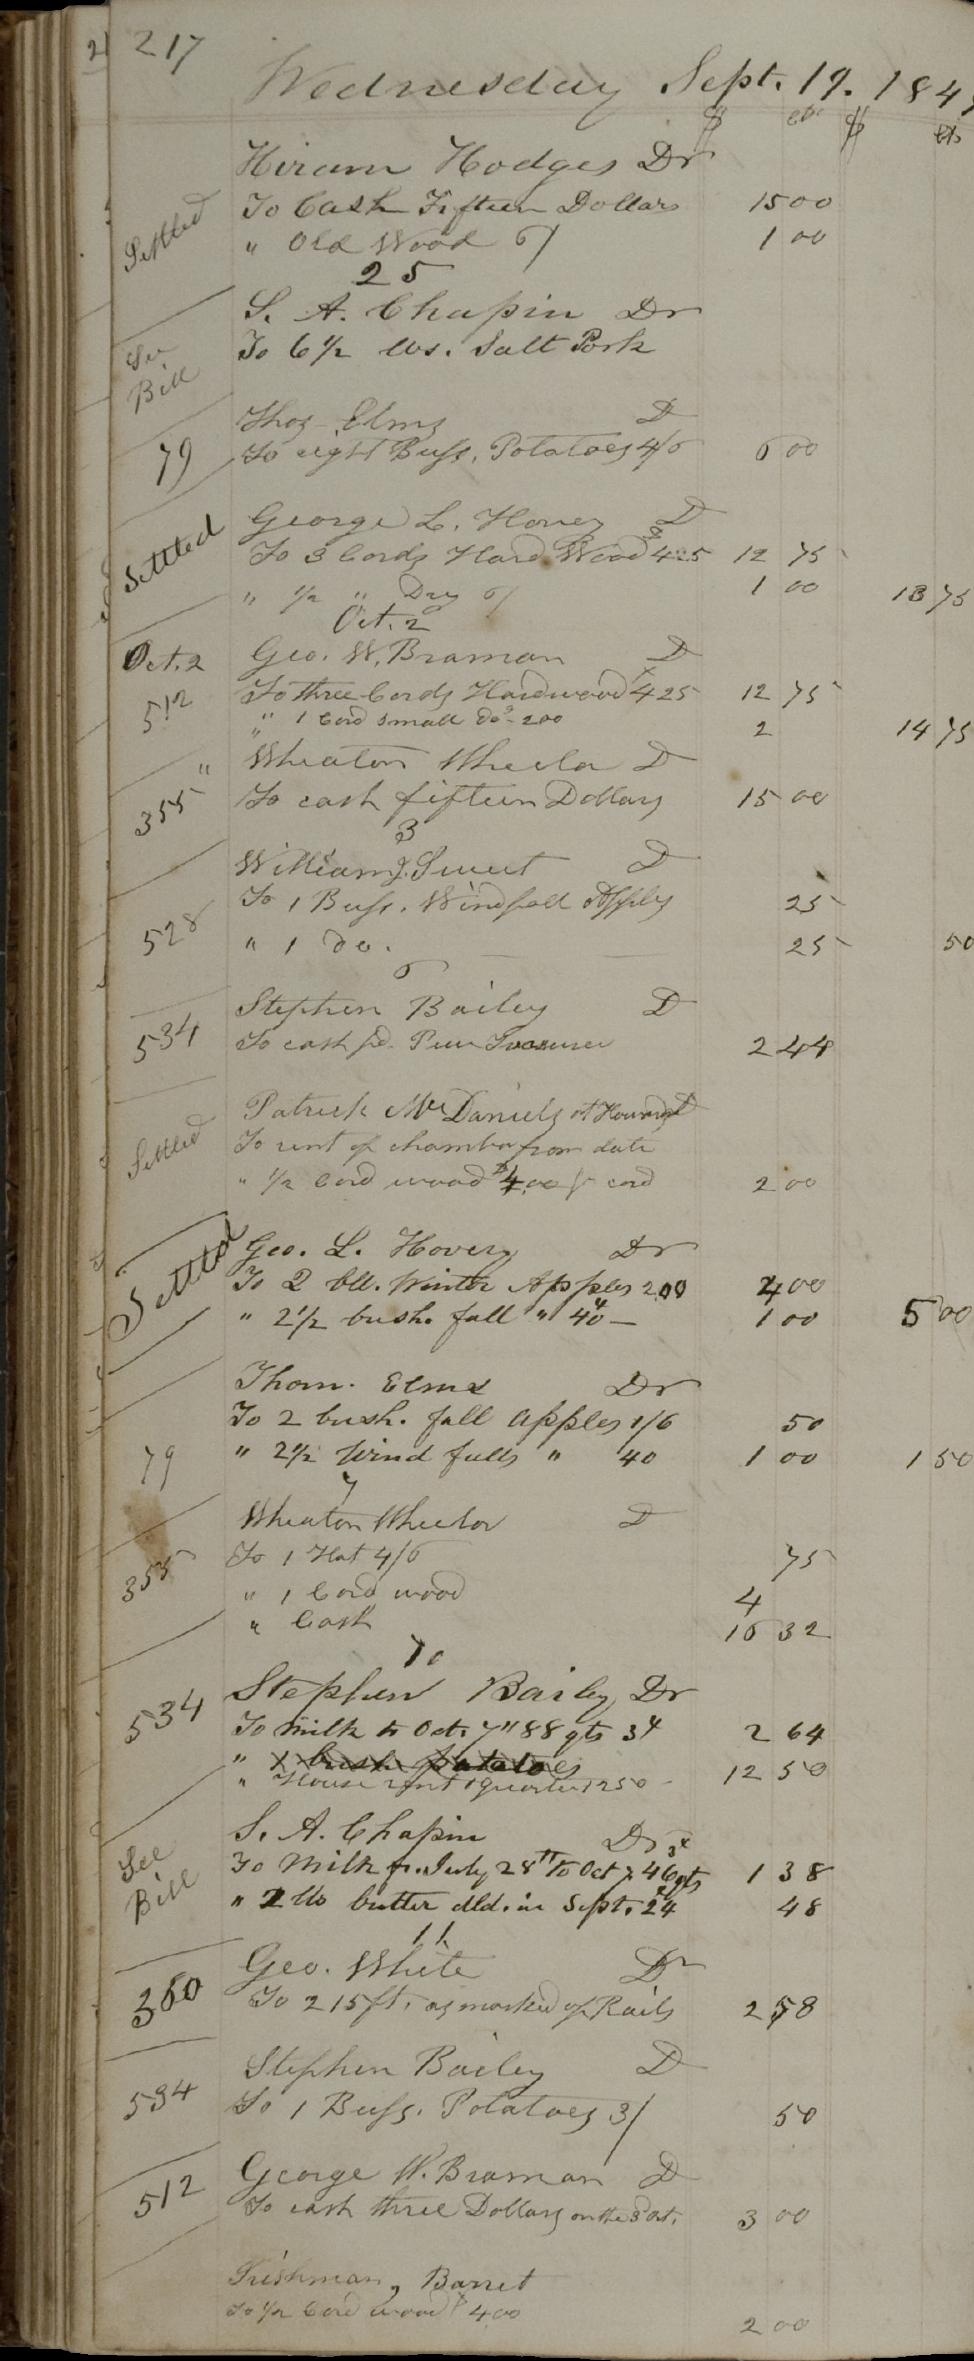 217
Wednesday Sept. 19. 184
$ cts $ cts
Hiram Hodges Dr
Settled To Cash Fifteen Dollars 15 00
" Old Wood 6/ 1 00
25
S. A. Chapin Dr
See Bill To 6 1/2 lbs. Salt Pork
Thos Elms D
79 To eight Buss. Potatoes 4/6 6 00
George L. Hovey D
Settled To 3 Cords Hard Wood 4 25 12 75
" 1/2 " Dry 6/ 1 00 13 75
Oct. 2
Oct. 2 Geo. W. Braman D
512 To three Cords Hardwood 4 25 12 75
" 1 Cord small do 2 00 2 14 75
" Wheaton Wheelor D
355 To cash fifteen Dollars 15 00
3
William J. Sweet D
528 To 1 Buss. Windfall Apples 25
" 1 do. 25 50
6
Stephen Bailey D
534 To cash pd. Pew Treasurer 2 44
Patrick McDaniels at Howards D
Settled To rent of chamber from date
" 1/2 Cord wood $4.00 pr cord 2 00
Geo. L. Hovey Dr
Settled To 2 bll. Winter Apples 2 00 4 00
" 2 1/2 bush. fall " 40 — 1 00 5 00
Thom. Elms Dr
To 2 bush. fall apples 1/6 50
79 " 2 1/2 Wind falls " 40 1 00 1 50
7
Wheaton Wheelor D
355 To 1 Hat 4/6 75
" 1 Cord wood 4
" Cash 16 32
10
534 Stephen Bailey Dr
To Milk to Oct. 7" 88 qts 3 2 64
" bush. potatoes
" House rent 1 quarter 12 50 12 50
S. A. Chapin Dr
See Bill To Milk fr. July 28th to Oct 7. 46 qts 1 38
" 2 lb butter dld. in Sept. 24 48
11
Geo. White Dr
360 To 215 ft. as marked of Rails 2 58
Stephen Bailey D
534 To 1 Buss. Potatoes 3/ 50
512 George W. Braman D
To cash three Dollars on the 3 Oct. 3 00
Irishman, Barret
To 1/2 Cord wood 4 00 2 00